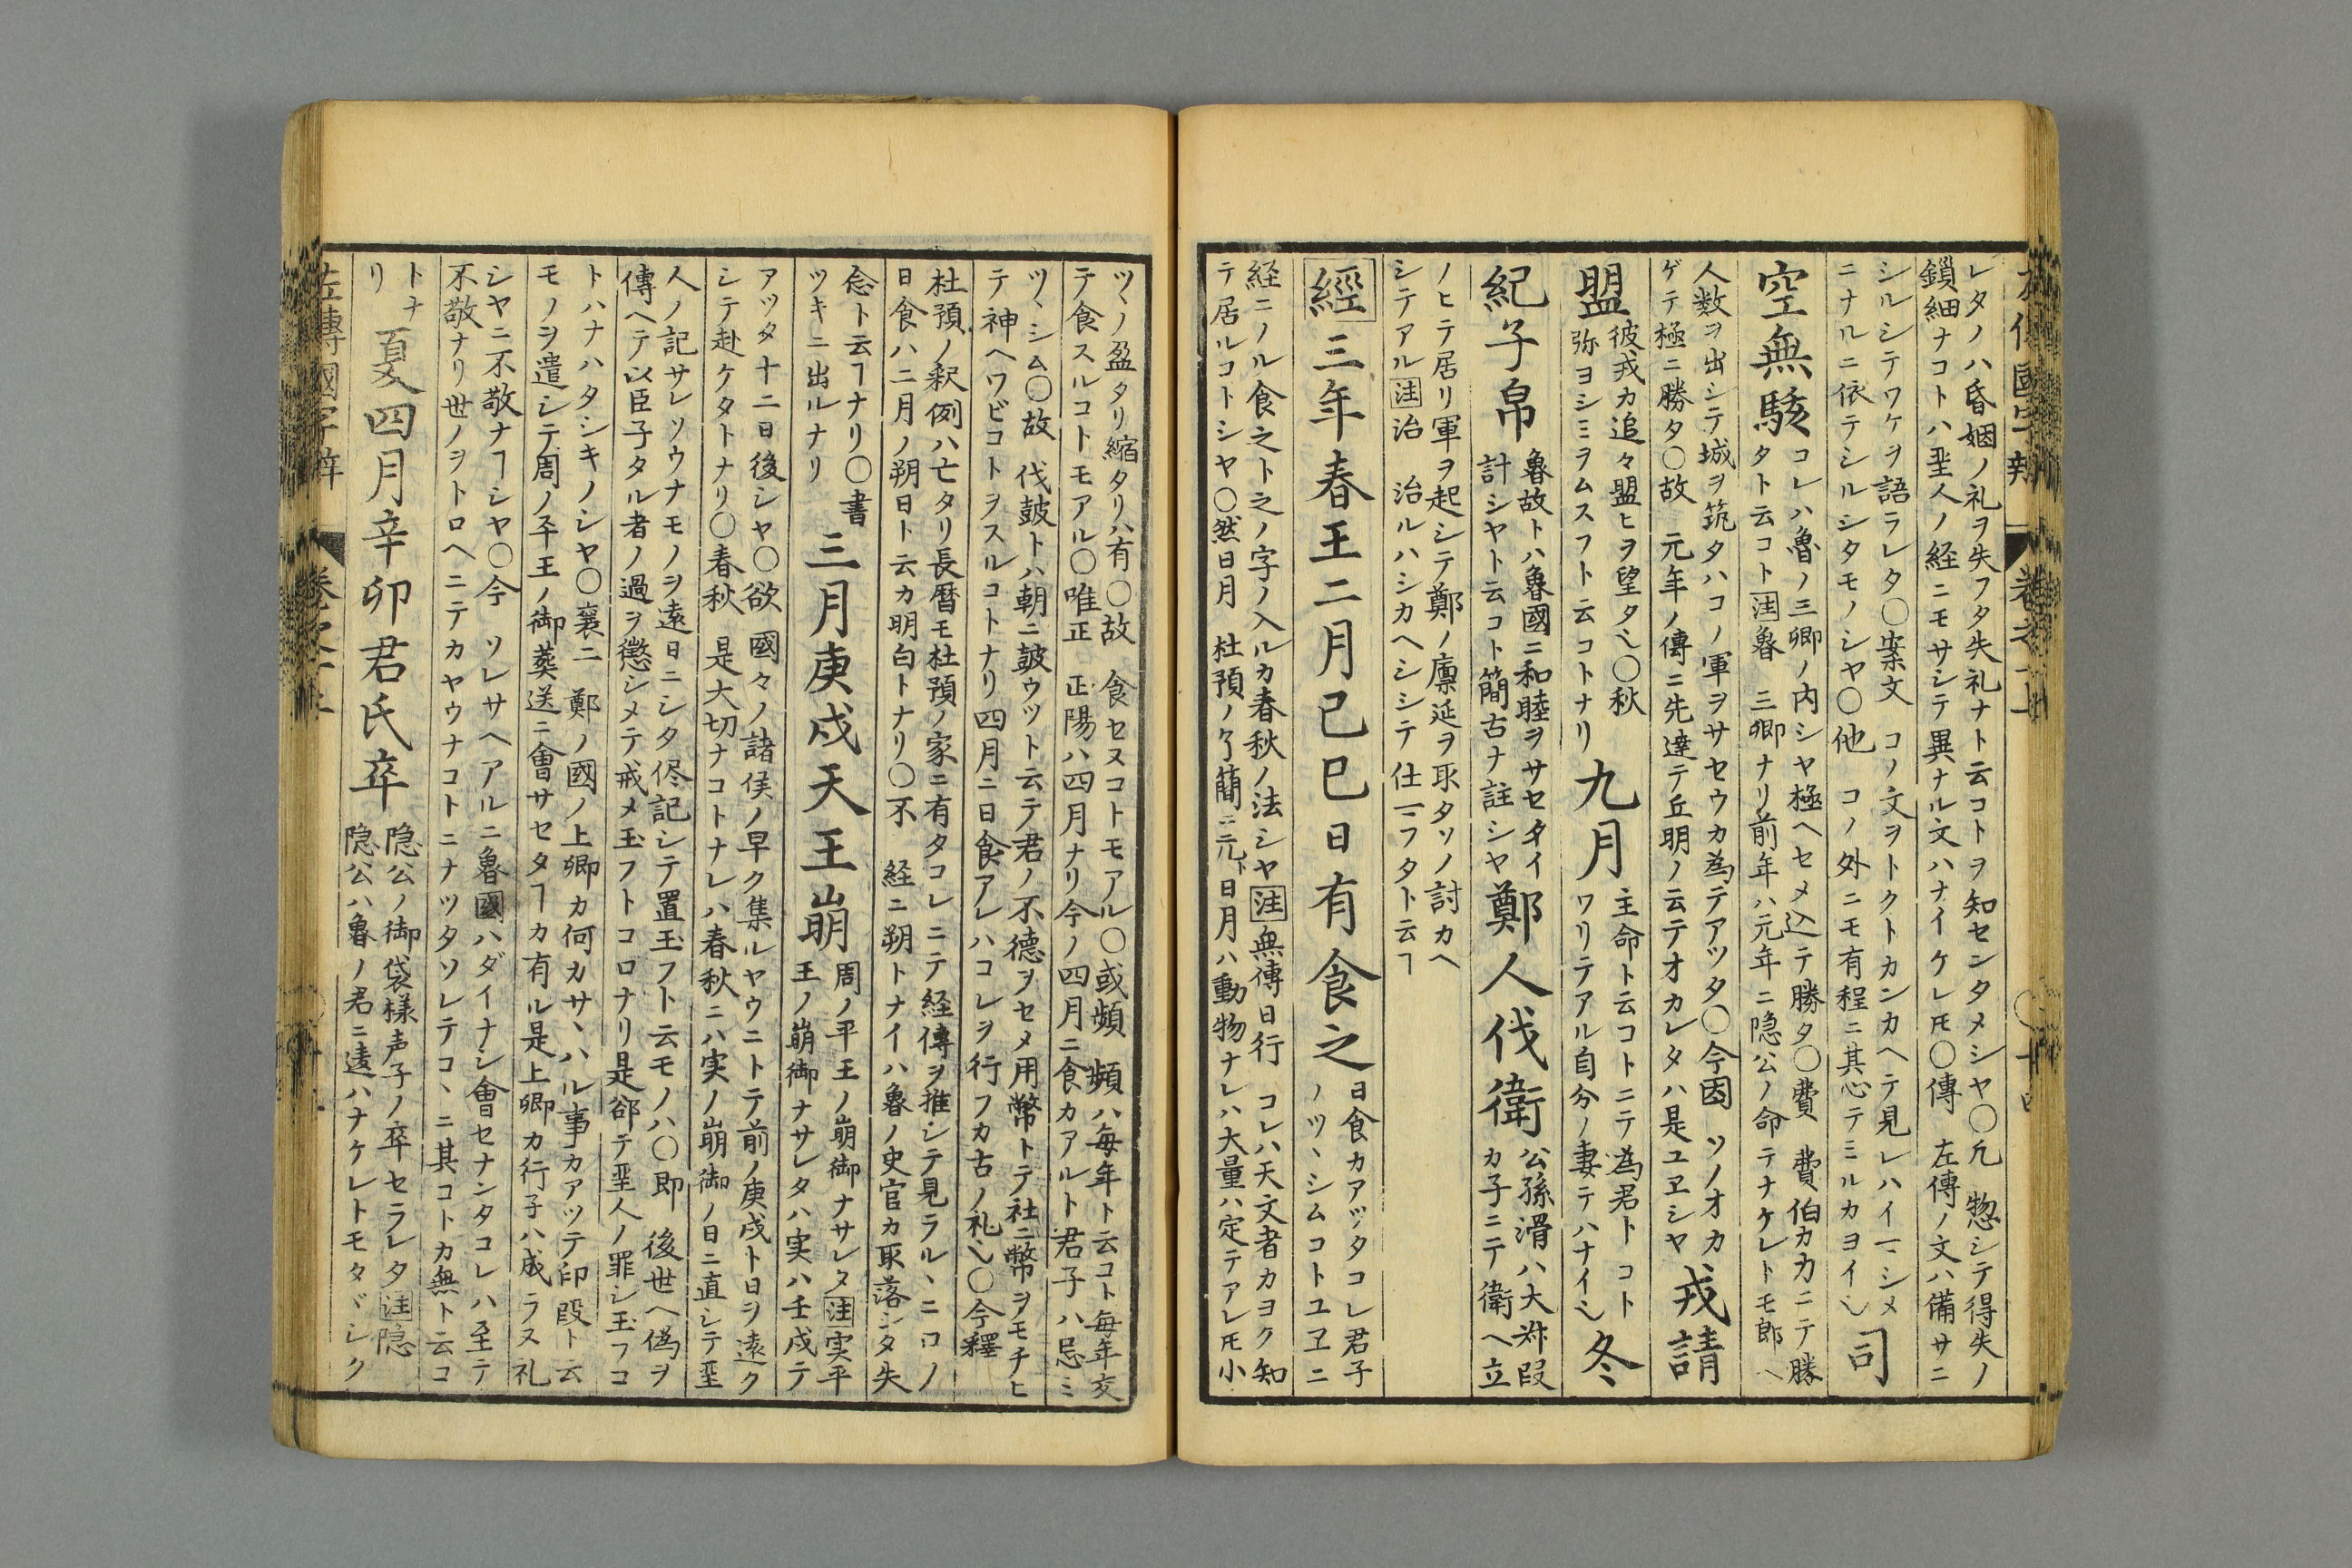 レタノハ昏姻ノ礼ヲ失フタ失礼ナト云コトヲ知センタメシヤ〇凡 惣シテ得失ノ
鎖細ナコトハ聖人ノ経ニモサシテ異ナル文ハナイケレ𪜈〇傳 左傳ノ文ハ備サニ
シルシテワケヲ語ラレタ〇案文 コノ文ヲトクトカンカヘテ見レハイマシメ
ニナルニ依テシルシタモノシヤ〇他 コノ外ニモ有程ニ其心テミルカヨイ也
司
空無駭
コレハ魯ノ三卿ノ内シヤ極ヘセメ込テ勝タ〇費 費伯カ力ニテ勝
タト云コト注魯 三卿ナリ前年ハ元年ニ隠公ノ命テナケレトモ郎ヘ
人数ヲ出シテ城ヲ筑タハコノ軍ヲサセウカ為テアツタ〇今因 ソノオカ
ゲテ極ニ勝タ〇故 元年ノ傳ニ先達テ丘明ノ云テオカレタハ是ユヱシヤ
戎請
盟
彼戎カ追々盟ヒヲ望タ也〇秋
弥ヨシミヲムスフト云コトナリ
九月
主命ト云コトニテ為君ト コト
ワリテアル自分ノ妻テハナイ也
冬
紀子帛
魯故トハ魯國ニ和睦ヲサセタイ
計シヤト云コト簡古ナ註シヤ
鄭人伐衛
公孫滑ハ大叔段
カ子ニテ衛ヘ立
ノヒテ居リ軍ヲ起シテ鄭ノ廪延ヲ取タソノ討カヘ
シテアル注治 治ルハシカヘシシテ仕マフタト云ヿ
經三年春王二月己巳日有食之
日食カアツタコレ君子
ノツヽシムコトユヱニ
経ニノル食之ト之ノ字ノ入ルカ春秋ノ法シヤ注無傳日行 コレハ天文者カヨク知
テ居ルコトシヤ〇然日月 杜預ノ了簡ニ元ト日月ハ動物ナレハ大量ハ定テアレ𪜈小
ツヽノ盈タリ縮タリハ有〇故 食セヌコトモアル〇或頻 頻ハ毎年ト云コト毎年交
テ食スルコトモアル〇唯正 正陽ハ四月ナリ今ノ四月ニ食カアルト君子ハ忌ミ
ツヽシム〇故 伐皷トハ朝ニ皷ウツト云テ君ノ不德ヲセメ用幣トテ社ニ幣ヲモチヒ
テ神ヘワビコトヲスルコトナリ四月ニ日食アレハコレヲ行フカ古ノ礼也〇今釋
杜預ノ釈例ハ亡タリ長暦モ杜預ノ家ニ有タコレニテ経傳ヲ推シテ見ラルヽニコノ
日食ハ二月ノ朔日ト云カ明白トナリ〇不 経ニ朔トナイハ魯ノ史官カ取落シタ失
念ト云ヿナリ〇書
ツキニ出ルナリ
三月庚戌天王崩
周ノ平王ノ崩御ナサレタ注実平
王ノ崩御ナサレタハ実ハ壬戌テ
アツタ十二日後シヤ〇欲 國々ノ諸侯ノ早ク集ルヤウニトテ前ノ庚戌ト日ヲ遠ク
シテ赴ケタトナリ〇春秋 是大切ナコトナレハ春秋ニハ実ノ崩御ノ日ニ直シテ聖
人ノ記サレソウナモノヲ遠日ニシタ侭記シテ置玉フト云モノハ〇即 後世ヘ偽ヲ
傳ヘテ以臣子タル者ノ過ヲ懲シメテ戒メ玉フトコロナリ是郤テ聖人ノ罪シ玉フコ
トハナハタシキノシヤ〇襄二 鄭ノ國ノ上卿カ何カサヽハル事カアツテ印段ト云
モノヲ遣シテ周ノ平王ノ御葬送ニ會サセタヿカ有ル是上卿カ行子ハ成ラヌ礼
シヤニ不敬ナヿシヤ〇今 ソレサヘアルニ魯國ハダイナシ會セナンタコレハ至テ
不敬ナリ世ノヲトロヘニテカヤウナコトニナツタソレテコヽニ其コトカ無ト云コ
トナ
リ
夏四月辛卯君氏卒
隠公ノ御袋様声子ノ卒セラレタ注隠
隠公ハ魯ノ君ニ違ハナケレトモタヾシク
左傳國字辨